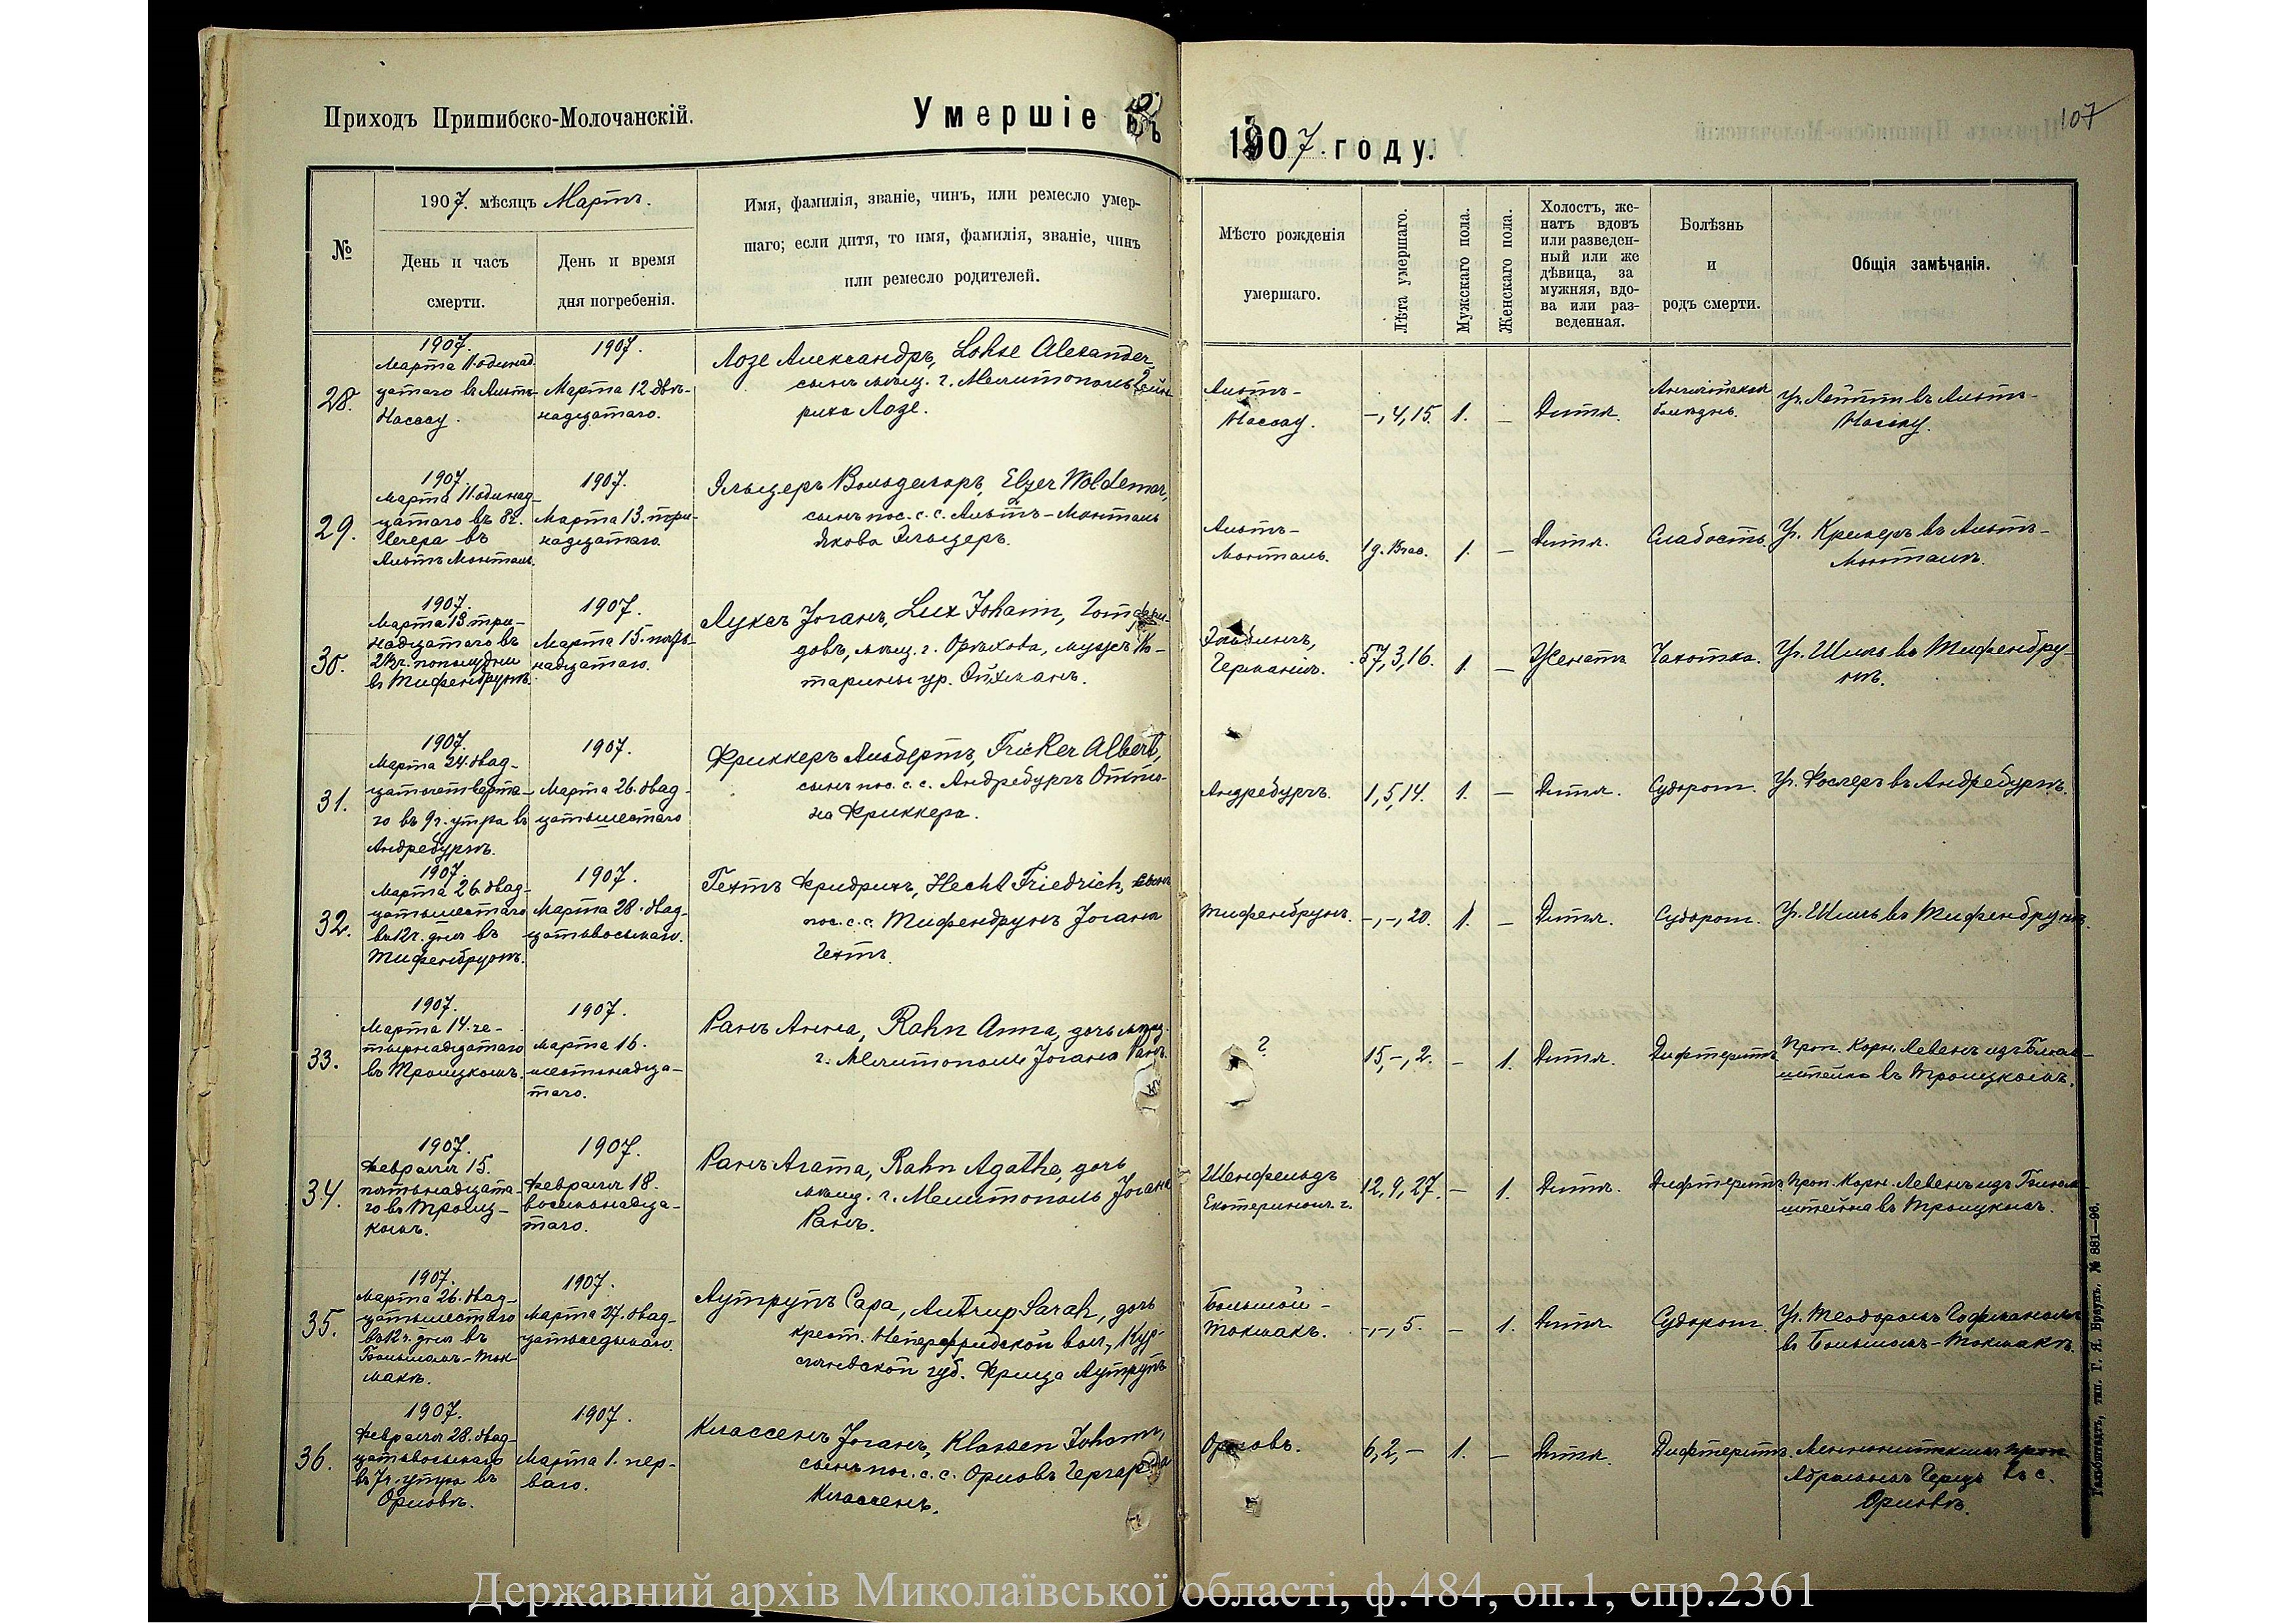 Приходъ Пришибско-Молочанскій.
Умершіе въ
1907. году.
107
№
1907. мѣсяцъ Мартъ.
День и часъ
смерти.
День и время
дня погребенія.
Имя, фамилія, званіе, чинъ, или ремесло умер-
шаго; если дитя, то имя, фамилія, званіе, чинъ
или ремесло родителей.
Мѣсто рожденія
умершаго.
Лѣта умершаго.
Мужскаго пола.
Женскаго пола.
Холостъ, же-
натъ вдовъ
или разведен-
ный или же
дѣвица, за
мужняя, вдо-
ва или раз-
веденная.
Болѣзнь
и
родъ смерти.
Общія замѣчанія.
28.
1907.
Марта 11. одинад
цатаго въ Альтъ-
Нассау.
1907.
Марта 12 двѣ-
надцатаго.
Лозе Александръ, Lohse Alexander
сынъ мѣщ. г. Мелитополь Гейн
риха Лозе.
Альтъ-
Нассау.
-, 4, 15.
1.
-
Дитя.
Английская
болѣзнь.
Уч. въ Альтъ-
Нассау.
29.
1907.
Марта 11. одинад-
цатаго въ 8ч.
вечера въ
Альтъ Монталь.
1907.
Марта 13. три-
надцатаго.
Эльцеръ Вольдемаръ, Elzer Woldemar,
сынъ пос. с. с. Альтъ-Монталь
Якова Эльцеръ.
Альтъ-
Монталь.
1.
-
Дитя.
Слабость.
Уч. въ Альтъ-
Монталѣ.
30.
1907.
Марта 13. три-
надцатаго въ
пополудни
въ Тифенбрунѣ.
1907.
Марта 15. пят-
надцатаго.
Луксъ Іоганъ, Lux Johann, Готфри-
довъ, мѣщ. г. Орѣхова, мужъ К-
тарины ур.
Германія.
57, 3, 16.
1.
-
Женатъ
Чахотка.
Уч. Шиль въ Тифенбру-
нѣ.
31.
1907.
Марта 24. двад-
цатьчетверта-
го въ 9ч. утра въ
Андребургѣ.
1907.
Марта 26. двад-
цатьшестаго
Фриккеръ Альбертъ, Fricker Albert,
сынъ пос. с. с. Андребургъ Отто-
на Фриккера.
Андребургъ.
1, 5, 14.
1.
-
Дитя.
Судорог.
Уч. Фослеръ въ Андребургѣ.
32.
1907.
Марта 26. двад-
цатьшестаго
въ 12ч. дня въ
Тифенбрунѣ.
1907.
Марта 28. двад-
цатьвосьмаго.
Гехтъ Фридрихъ, Hecht Friedrich, сынъ
пос. с. с. Тифенбрунъ Іогана
Гехтъ.
Тифенбрунъ.
-, -, 20.
1.
-
Дитя.
Судорог.
Уч. Шиль въ Тифенбрунѣ.
33.
1907.
Марта 14. че-
тырнадцатаго
въ Троицкомъ.
1907.
Марта 16.
шестьнадца-
таго.
Ранъ Анна, Rahn Anna, дочь мѣщ.
г. Мелитополь Іогана Ранъ.
?
15, -, 2.
-
1.
Дитя.
Дифтеритъ
Проп. Корн. Левенъ изъ Блюмен-
штейна въ Троицкомъ.
34.
1907.
Февраля 15.
пятьнадцата-
го въ Троиц-
комъ.
1907.
Февраля 18.
восемьнадца-
таго.
Ранъ Агата, Rahn Agathe, дочь
мѣщ. г. Мелитополь Іогана
Ранъ.
Шенфельдъ
Екатеринosл. г.
12, 9, 27.
-
1.
Дитя.
Дифтеритъ
Проп. Корн. Левенъ изъ Блюмен-
штейна въ Троицкомъ.
35.
1907.
Марта 26. двад-
цатьшестаго
въ 12ч. дня въ
Большомъ-Ток-
макѣ.
1907.
Марта 27. двад-
цатьседьмаго.
Аутрупъ Сара, Autrup Sarah, дочь
крест. вол., Кур-
ляндской губ. Фрица Аутрупъ
Большой-
Токмакъ.
-, -, 5.
-
1.
Дитя
Судорог.
Уч. Теодоромъ Гофманомъ
въ Большомъ-Токмакѣ.
36.
1907.
Февраля 28. двад-
цатьвосьмаго
въ 7ч. утра въ
Орловѣ.
1907.
Марта 1. пер-
ваго.
Классенъ Іоганъ, Klassen Johann,
сынъ пос. с. с. Орловъ Гергарда
Классенъ.
Орловъ.
6, 2, -
1.
-
Дитя.
Дифтеритъ.
Меннонитскимъ проп
Абрамомъ Герцъ въ с.
Орловѣ.
Гальбштадтъ, тип. Г. Я. Браунъ. № 881—96.
Державний архів Миколаївської області, ф.484, оп.1, спр.2361